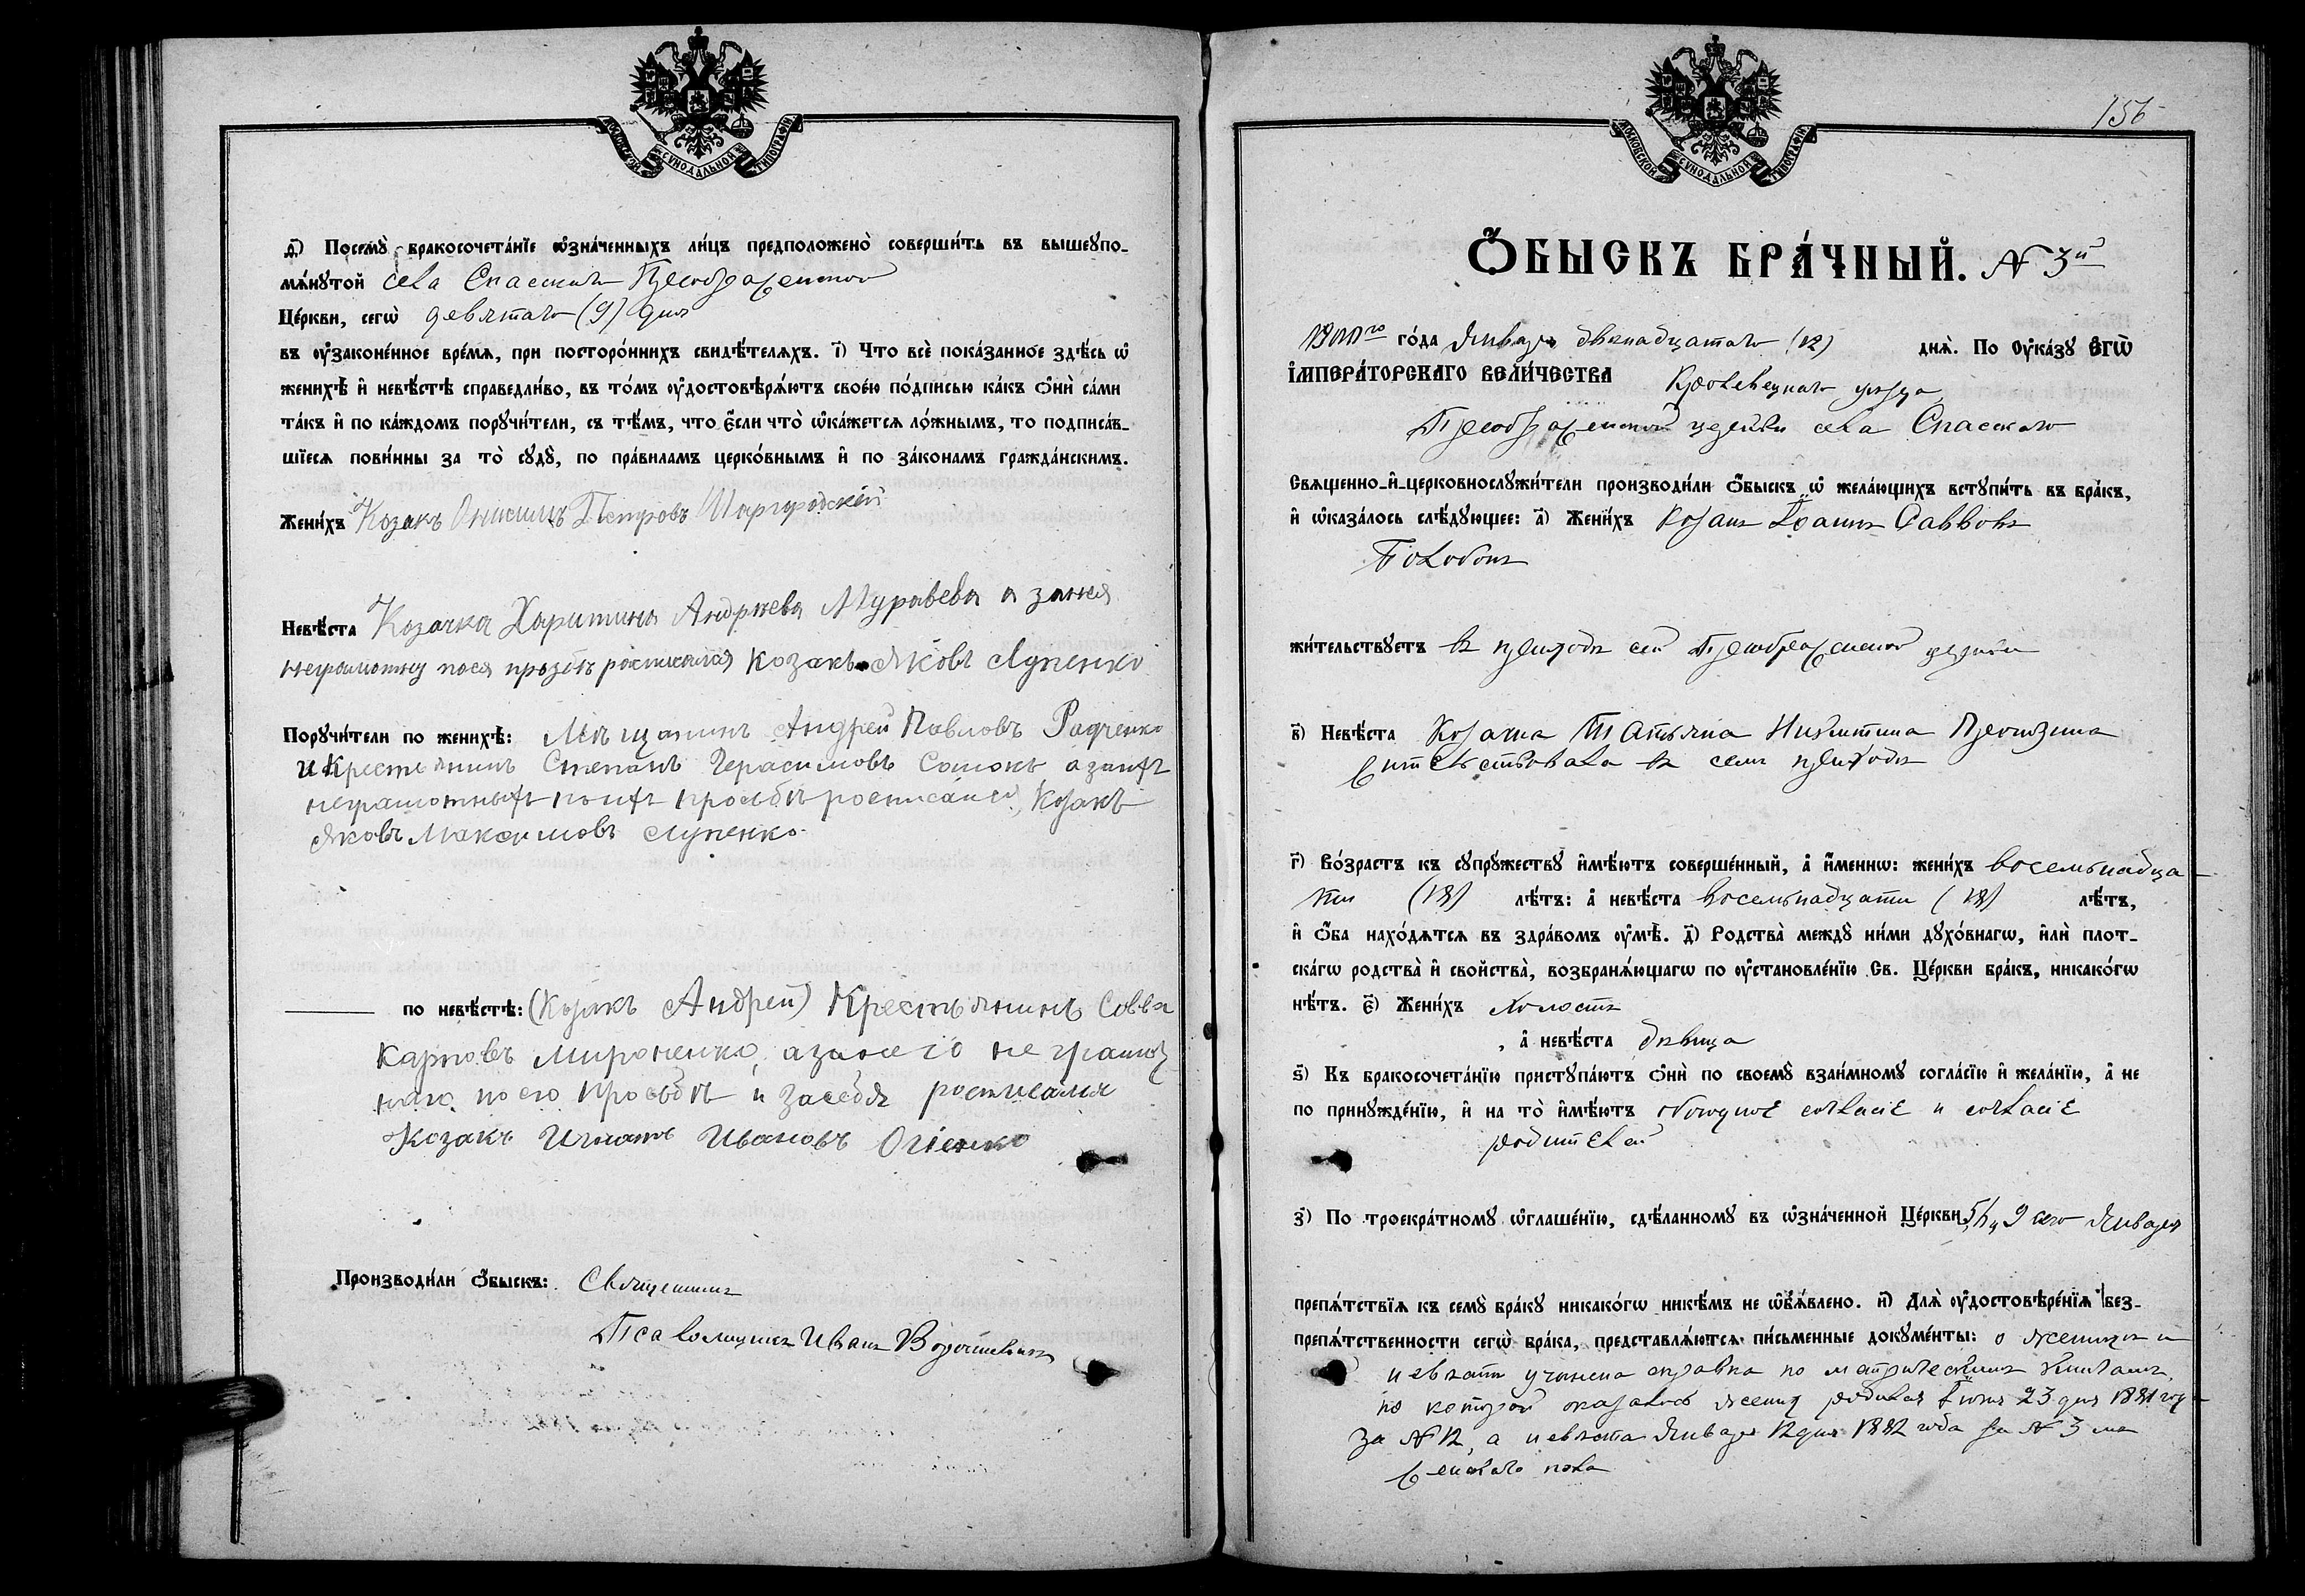 МОСКОВСКОЙ СУНОДАЛЬНОЙ ТИПОГРАФІИ
ѳ҃) Посемꙋ̀ бракосочета́нїе ѡ҆зна́ченныхъ ли́цъ предположено̀ соверши́ть въ вышеꙋпо-
мѧ́нꙋтой села Спасскаго Преображенской
Це́ркви, сегѡ̀ девятаго (9) дня
въ ᲂу҆законе́нное вре́мѧ, при посторо́ннихъ свидѣ́телѧхъ. і҃) Что всѐ пока́занное здѣ́сь ѡ҆
женихѣ̀ и҆ невѣ́стѣ справедли́во, въ то́мъ ᲂу҆достовѣрѧ́ютъ свое́ю по́дписью ка́къ ѻ҆нѝ са́ми
та́къ и҆ по ка́ждомъ порꙋчи́тели, съ тѣ́мъ, что є҆́сли что̀ ѡ҆ка́жетсѧ ло́жнымъ, то подписа́в-
шїесѧ пови́нны за то̀ сꙋдꙋ̀, по пра́виламъ церко́внымъ и҆ по зако́намъ гражда́нскимъ.
Жени́хъ Козакъ Онисимъ Петровъ Шаргородскій
Невѣ́ста Козачка Харитина Андреева Муравева а занея
неграмотну поея прозбѣ росписался Козакъ Яковъ Лупенко
Порꙋчи́тели по женихѣ̀: Мѣщанинъ Андрей Павловъ Радченко
и Крестянинъ Степанъ Герасимовъ Сомокъ, а заних
неграмотных поих прозбѣ росписался Козакъ
Яковъ Максимовъ Лупенко.
по невѣ́стѣ: (Козакъ Андрей) Крестьянинъ Савва
Карповъ Мироненко, а занего не грамот
наго по его прозбѣ и засебя росписался
Козакъ Игнатъ Ивановъ Огіенко
Производи́ли ѻ҆́быскъ: Священникъ
Псаломщикъ Иванъ
156
МОСКОВСКОЙ СУНОДАЛЬНОЙ ТИПОГРАФІИ
Ѻ҆́БЫСКЪ БРА́ЧНЫЙ. № 3й
1900го го́да Января двенадцатаго (12) днѧ̀. По Оу҆ка́зꙋ Є҆ГѠ̀
І҆МПЕРА́ТОРСКАГО ВЕЛИ́ЧЕСТВА Кролевецкаго уезда
Преображенской церкви села Спасскаго
Свѧщенно-и҆-церковнослꙋжи́тели производи́ли ѻ҆́быскъ ѡ҆ жела́ющихъ встꙋпи́ть въ бра́къ,
и҆ ѡ҆каза́лось слѣ́дꙋющее: а҃) Жени́хъ Козакъ Іоаннъ Саввовъ
жи́тельствꙋетъ въ приходѣ сей Преображенской церкви
в҃) Невѣ́ста Козачка Татьяна Никитина
жительствовала въ семъ приходѣ
г҃) Во́зрастъ къ сꙋпрꙋ́жествꙋ и҆мѣ́ютъ соверше́нный, а҆ и҆́менно: жени́хъ восемьнадца-
ти (18) лѣ́тъ: а҆ невѣ́ста восемьнадцати (18) лѣ́тъ,
и҆ ѻ҆́ба нахо́дѧтсѧ въ здра́вомъ ᲂу҆мѣ̀. д҃) Родства̀ междꙋ̀ ни́ми дꙋхо́внагѡ, и҆лѝ плот-
ска́гѡ родства̀ и҆ сво́йства, возбранѧ́ющагѡ по ᲂу҆становле́нїю Св. Це́ркви бра́къ, никако́гѡ
нѣ́тъ. є҃) Жени́хъ холостъ
, а҆ невѣ́ста дѣвица
ѕ҃) Къ бракосочета́нїю пристꙋпа́ютъ ѻ҆нѝ по своемꙋ̀ взаи́мномꙋ согла́сїю и҆ жела́нїю, а҆ не
по принꙋжде́нїю, и҆ на то̀ и҆мѣ́ютъ обоюдное согласіе и согласіе
родителей
з҃) По троекра́тномꙋ ѡ҆глаше́нїю, сдѣ́ланномꙋ въ ѡ҆зна́ченной Це́ркви 9 сего Января
препѧ́тствїѧ къ семꙋ̀ бра́кꙋ никако́гѡ никѣ́мъ не ѡ҆б̾ѧ́влено. и҃) Длѧ̀ ᲂу҆достовѣре́нїѧ без-
препѧ́тственности сегѡ̀ бра́ка, представлѧ́ютсѧ пи́сьменные докꙋме́нты: о женихѣ и
невѣстѣ учинена справка по метрическимъ книгамъ,
по которой оказалось женихъ родился Іюня 23 дня 1881 году
за № 12, а невѣста Января 12 дня 1882 года за № 3 мъ
женскаго пола